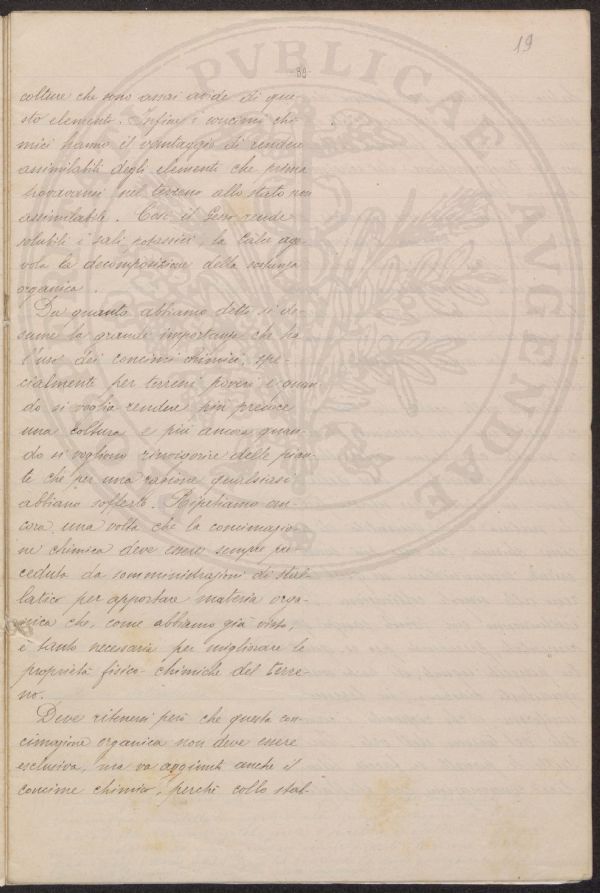 19
89
PVBLICAE AVGENDAE
colture che sono assai avide di que-
sto elemento. Infine i concimi chi-
mici hanno il vantaggio di rendere
assimilabili degli elementi che prima
trovavansi nel terreno allo stato non
assimilabile. Così il Gesso rende
solubili i sali potassici, la Calce age-
vola la decomposizione della sostanza
organica.
Da quanto abbiamo detto si de-
sume la grande importanza che ha
l'uso dei concimi chimici, spe-
cialmente per terreni poveri e quan-
do si voglia rendere più precoce
una coltura e più ancora quan-
do si vogliono rinvigorire delle pian-
te che per una ragione qualsiasi
abbiano sofferto. Ripetiamo an-
cora una volta che la concimazio-
ne chimica deve essere sempre pre-
ceduta da somministrazioni di stal-
latico per apportare materia orga-
nica che, come abbiamo già visto,
è tanto necessaria per migliorare le
proprietà fisico-chimiche del terre-
no.
Deve ritenersi però che questa con-
cimazione organica non deve essere
esclusiva, ma va aggiunto anche il
concime chimico, perchè collo stal-